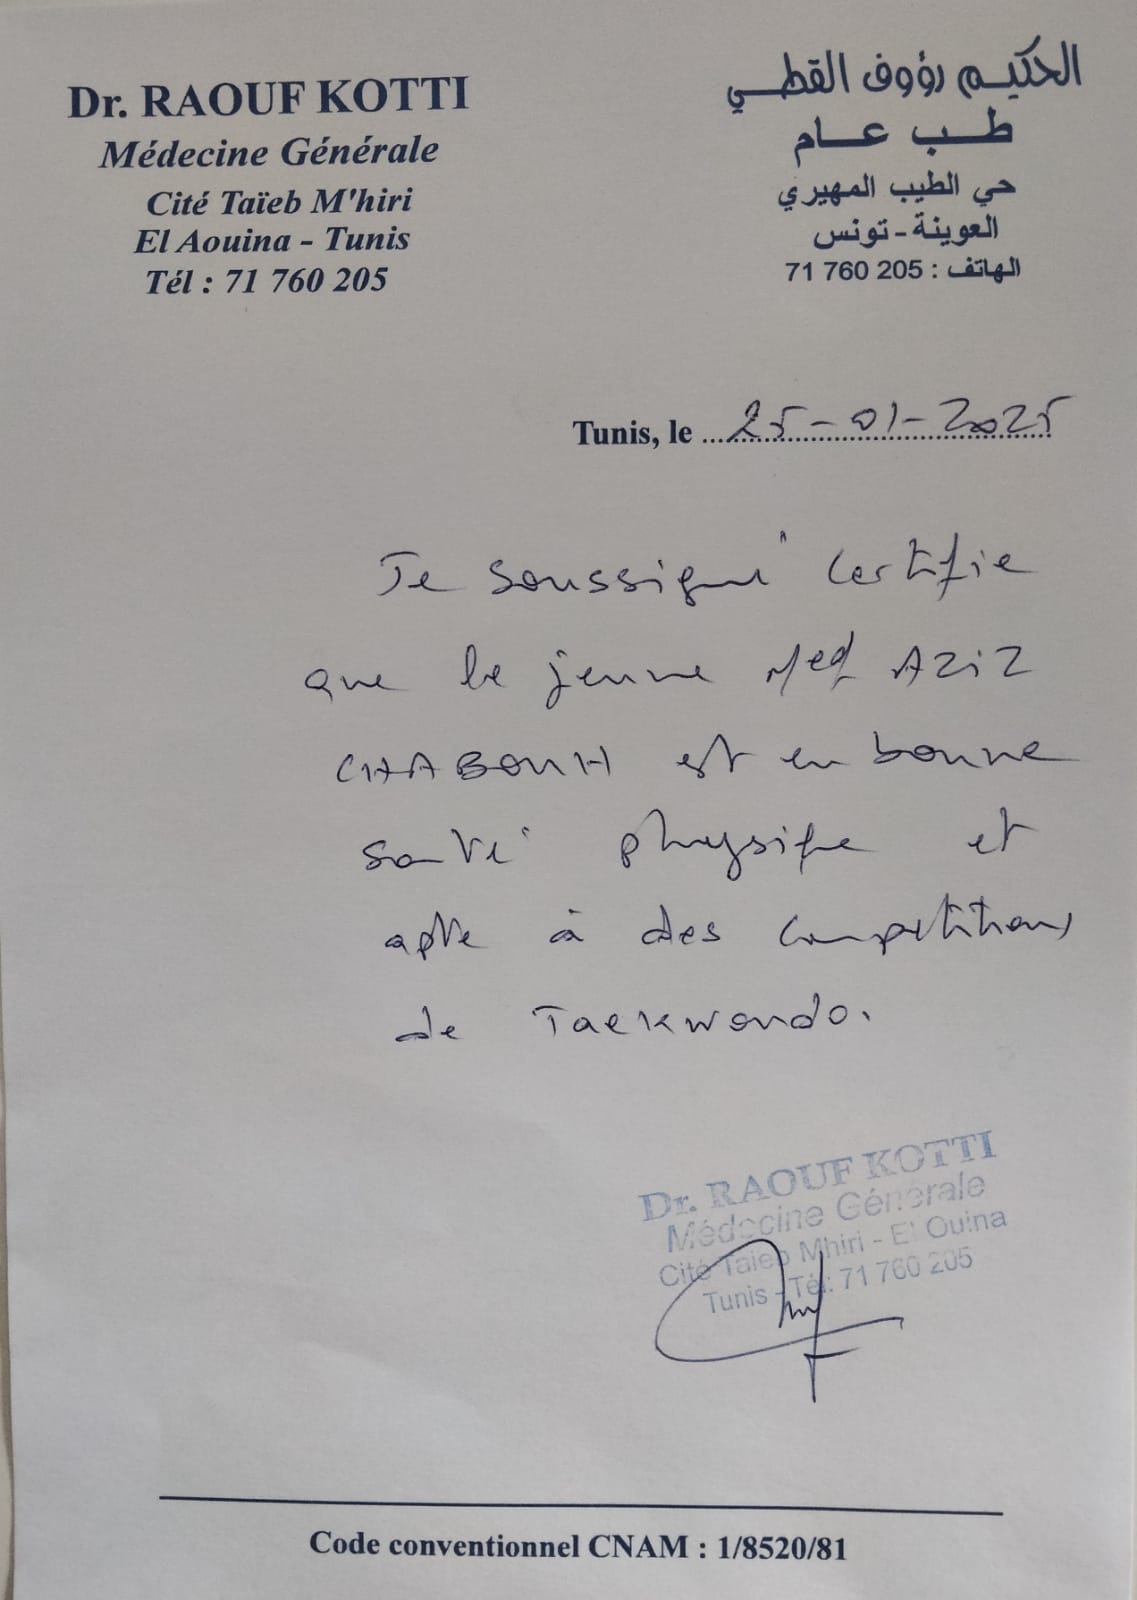 Dr. RAOUF KOTTI
Médecine Générale
Cité Taïeb M'hiri
El Aouina - Tunis
Tél : 71 760 205
الحكيم رؤوف القطي
طب عام
حي الطيب المهيري
العوينة - تونس
الهاتف : 205 760 71
Tunis, le 25-01-2025
Je soussigné certifie
que le jeune Med AZIZ
CHABOUH est en bonne
santé physique et
apte à des compétitions
de Taekwondo.
Dr. RAOUF KOTTI
Médecine Générale
Cité Taieb Mhiri - El Ouina
Tunis - Tél: 71 760 205
Code conventionnel CNAM : 1/8520/81